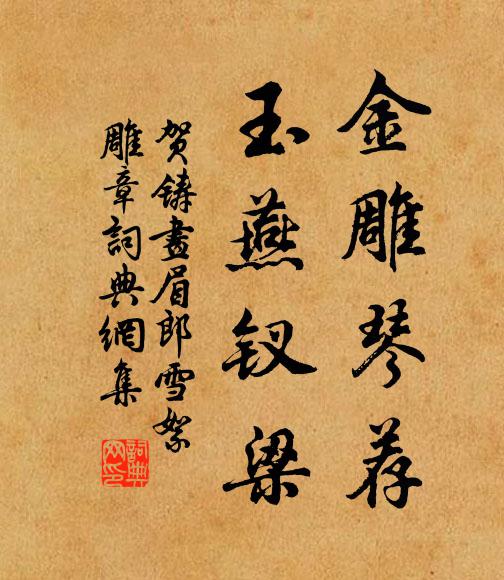 金雕琴荐
玉燕钗梁
贺铸画眉郎雪絮
雕章词典网集
詞典網印